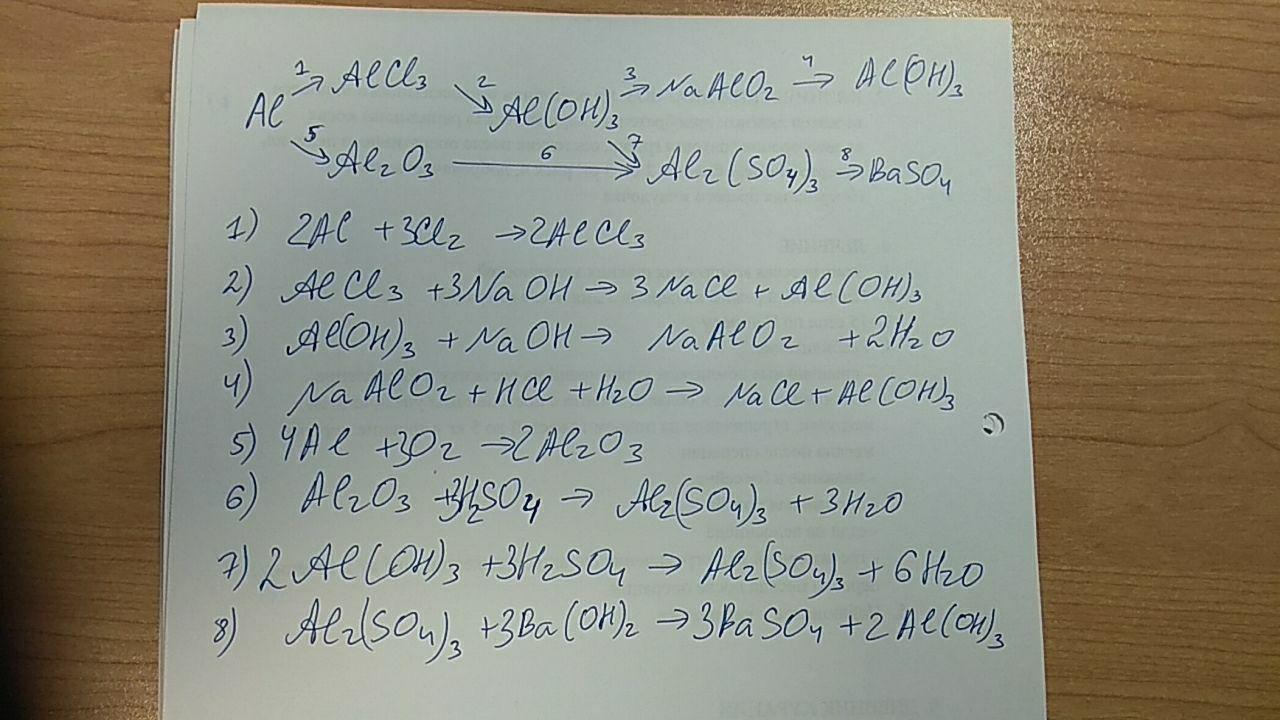 1 → AlCl3 2 ↘ 3 → NaAlO2 4 → Al(OH)3
Al Al(OH)3
5 ↘ Al2O3 6 → 7 ↘ Al2(SO4)3 8 → BaSO4
1) 2Al + 3Cl2 → 2AlCl3
2) AlCl3 + 3NaOH → 3NaCl + Al(OH)3
3) Al(OH)3 + NaOH → NaAlO2 + 2H2O
4) NaAlO2 + HCl + H2O → NaCl + Al(OH)3
5) 4Al + 3O2 → 2Al2O3
6) Al2O3 + 3H2SO4 → Al2(SO4)3 + 3H2O
7) 2Al(OH)3 + 3H2SO4 → Al2(SO4)3 + 6H2O
8) Al2(SO4)3 + 3Ba(OH)2 → 3BaSO4 + 2Al(OH)3